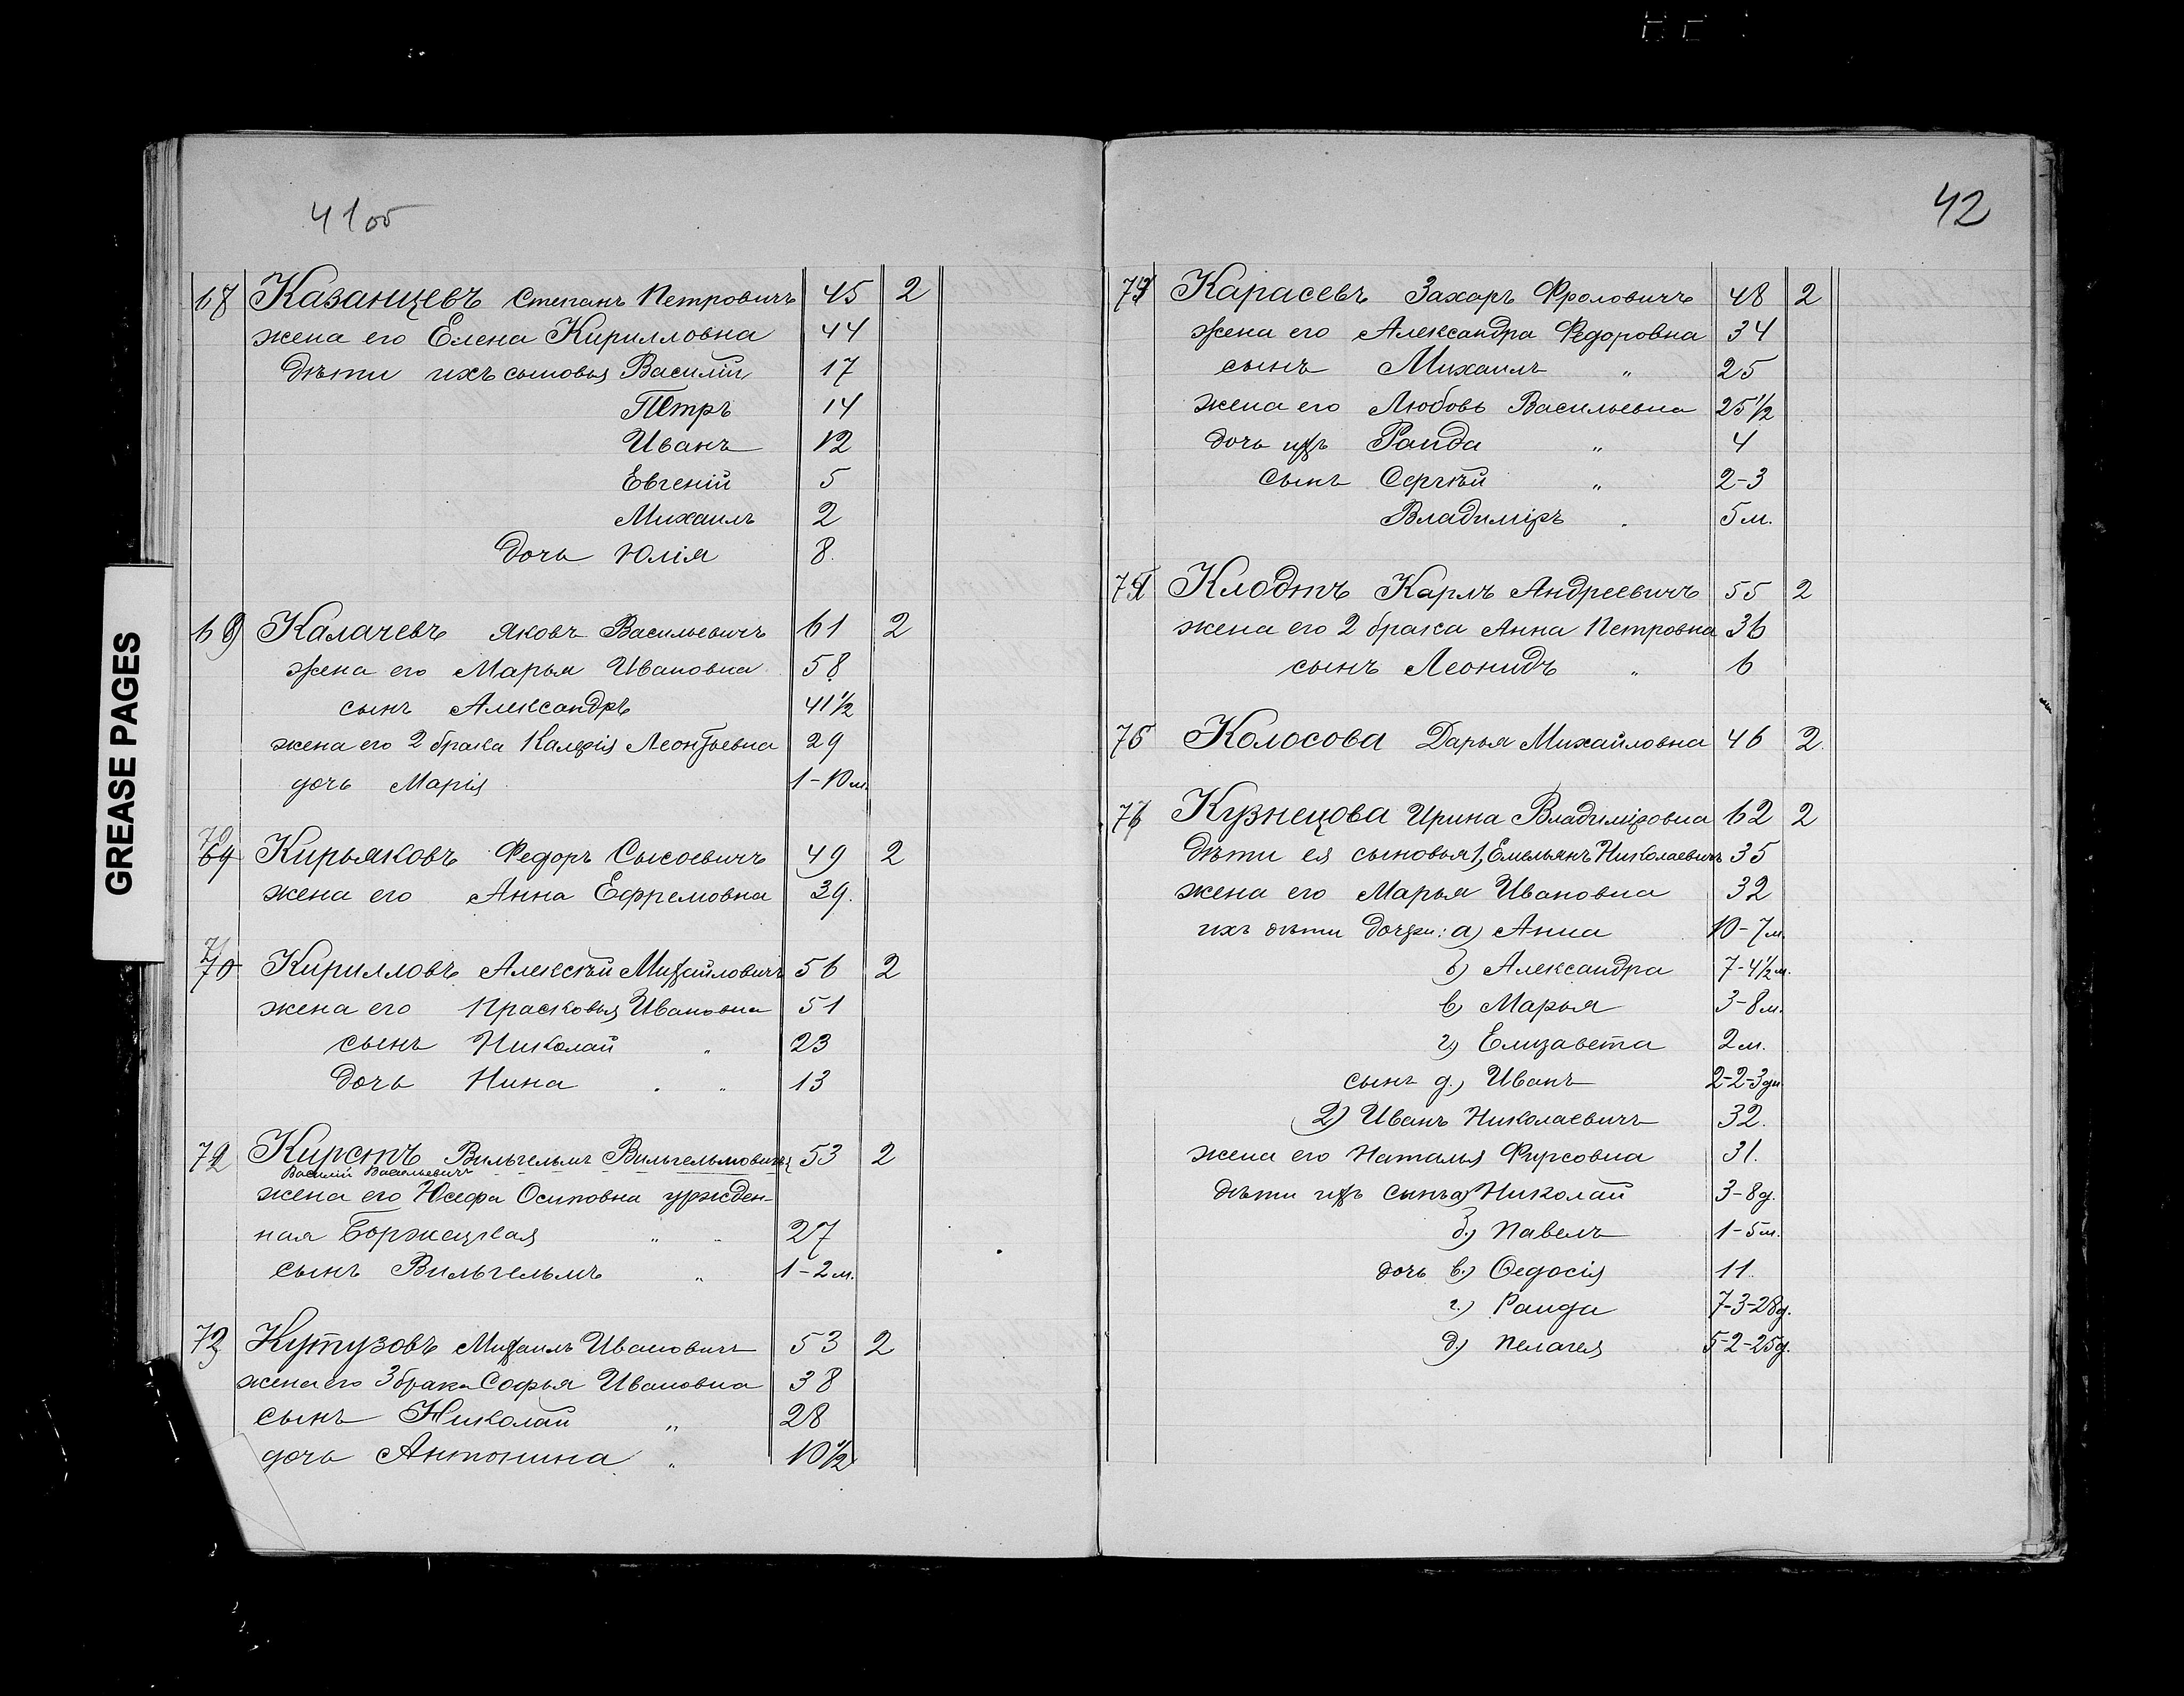 GREASE PAGES
41об
68 Казанцевъ Степанъ Петровичъ 45 2
жена его Елена Кирилловна 44
дѣти ихъ сыновья Василій 17
Петръ 14
Иванъ 12
Евгеній 5
Михаилъ 2
дочь Юлія 8.
69 Калачевъ Яковъ Васильевичъ 61 2
жена его Марья Ивановна 58
сынъ Александръ 41½
жена его 2 брака Калерія Леонтьевна 29
дочь Марія 1-10 м.
70
69 Кирьяковъ Федоръ Сысоевичъ 49 2
жена его Анна Ефремовна 39.
71
70 Кирилловъ Алексѣй Михайловичъ 56 2
жена его Прасковья Ивановна 51
сынъ Николай „ 23
дочь Нина . „ 13
72 Кирстъ Вильгельмъ Вильгельмовичъ 53 2
Василій Васильевичъ
жена его Юзефа Осиповна урожден-
ная Боржецкая „ „ 27
сынъ Вильгельмъ „ 1-2 м.
73 Кутузовъ Михаилъ Ивановичъ 53 2
жена его 3 брака Софья Ивановна 38
сынъ Николай „ 28
дочь Антонина „ 10½
42
74 Карасевъ Захаръ Фроловичъ 48 2
жена его Александра Федоровна 34
сынъ Михаилъ „ 25
жена его Любовь Васильевна 25½
дочь ихъ Раида „ 4
сынъ Сергѣй „ 2-3
Владиміръ . 5 м.
75 Клодтъ Карлъ Андреевичъ 55 2
жена его 2 брака Анна Петровна 36
сынъ Леонидъ „ 6
76 Колосова Дарья Михайловна 46 2.
77 Кузнецова Ирина Владиміровна 62 2
дѣти ея сыновья 1, Емельянъ Николаевичъ 35
жена его Марья Ивановна 32
ихъ дѣти дочери: а) Анна 10-7 м.
б) Александра 7-4½ м.
в) Марья 3-8 м.
г) Елизавета 2 м.
сынъ д.) Иванъ 2-2-3 дн
2) Иванъ Николаевичъ 32.
жена его Наталья Фирсовна 31.
дѣти ихъ сынъ а) Николай 3-8 д.
б.) Павелъ 1-5 м.
дочь в.) Ѳедосія 11.
г.) Раида 7-3-28 д.
д) Пелагея 5-2-25 д.